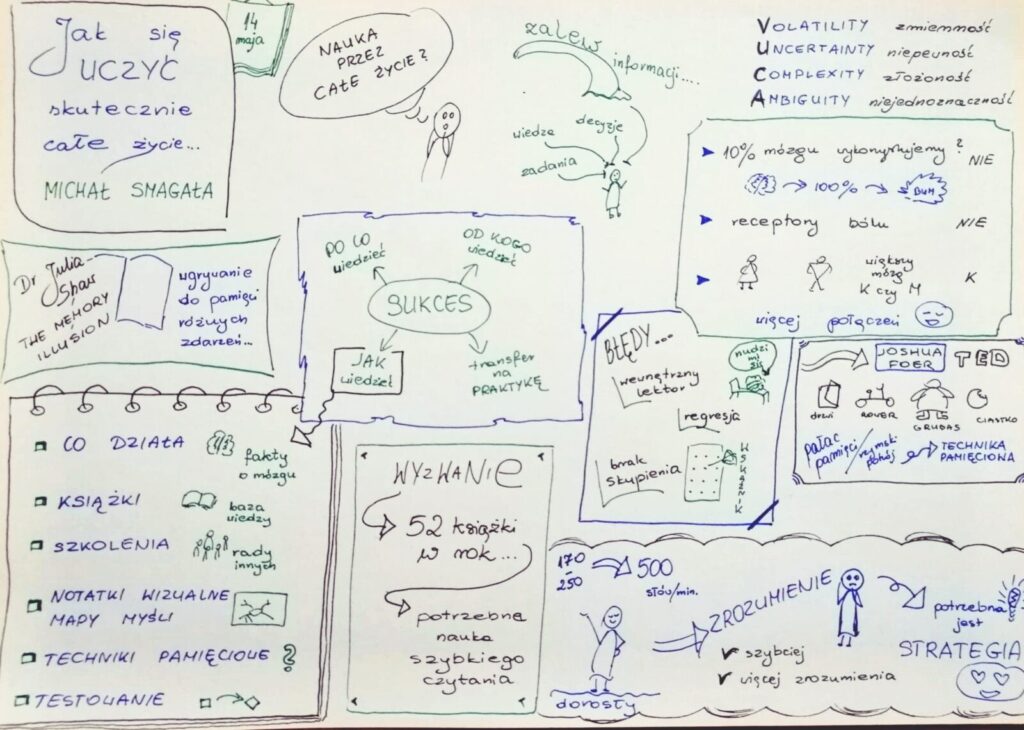 Jak się
UCZYĆ
skutecznie
całe życie...
MICHAŁ SMAGAŁA
14
maja
NAUKA
PRZEZ
CAŁE ŻYCIE?
zalew
informacji....
wiedza
decyzje
zadania
VOLATILITY zmienność
UNCERTAINTY niepewność
COMPLEXITY złożoność
AMBIGUITY niejednoznaczność
10% mózgu wykorzystujemy? NIE
100%
BUM
receptory bólu NIE
większy
mózg
K czy M
K
więcej połączeń
Dr Julia
Shaw
THE MEMORY
ILLUSION
wgrywanie
do pamięci
różnych
zdarzeń...
PO CO
wiedzieć
OD KOGO
wiedzieć
SUKCES
JAK
wiedzieć
transfer
na
PRAKTYKĘ
BŁĘDY...
nudzi
mi
się
wewnętrzny
lektor
regresja
brak
skupienia
WSKAŹNIK
JOSHUA
FOER
TED
drzwi
ROWER
GRUBAS
CIASTKO
pałac
pamięci/rzymski
pokój
TECHNIKA
PAMIĘCIOWA
CO DZIAŁA
fakty
o mózgu
KSIĄŻKI
baza
wiedzy
SZKOLENIA
rady
innych
NOTATKI WIZUALNE
MAPY MYŚLI
TECHNIKI PAMIĘCIOWE ?
TESTOWANIE
WYZWANIE
52 książki
w rok...
potrzebna
nauka
szybkiego
czytania
170
-
250
500
słów/min.
dorosły
ZROZUMIENIE
szybciej
więcej zrozumienia
potrzebna
jest
STRATEGIA